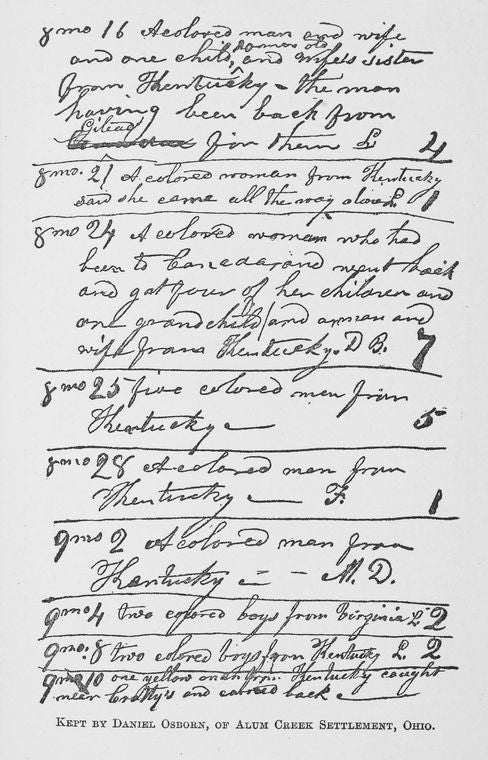 8mo 16 A colored man and wife
10 mos old
and one child, and wife's sister
from Kentucky - the man
having been back from
Gilead
for them L 4
8mo. 21 A colored woman from Kentucky
said she came all the way alone L. 1
8mo 24 A colored woman who had
been to Canada and went back
and got four of her children and
one grandchild and a man and
wife from Kentucky. D B. 7
8mo 25 five colored men from
Kentucky 5
8mo 28 A colored man from
Kentucky — F. 1
9mo 2 A colored man from
Kentucky — - M. D.
9mo 4 two colored boys from Virginia L 2
9mo. 8 two colored boys from Kentucky L. 2
9mo 10 one yellow man from Kentucky caught
near Cratty's and carried back
KEPT BY DANIEL OSBORN, OF ALUM CREEK SETTLEMENT, OHIO.